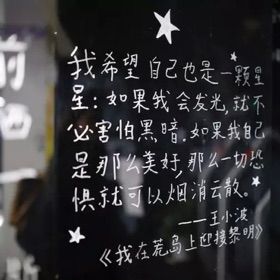 我希望自己也是一颗星
星:如果我会发光,就不
必害怕黑暗.如果我自己
是那么美好,那么一切恐
惧就可以烟消云散。
——王小波
《我在荒岛上迎接黎明》
前
洒
斯